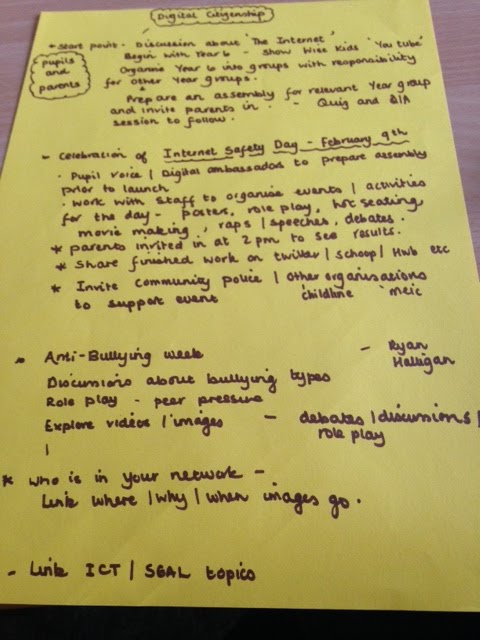 Digital Citizenship
* Start point - Discussion about 'The Internet'
Begin with Year 6 - Show Wise Kids 'You tube'
pupils and parents
Organise Year 6 into groups with responsibility
for other Year groups.
Prepare an assembly for relevant Year group
and invite parents in. - Quiz and Q/A
session to follow.
- Celebration of Internet Safety Day - February 9th
. Pupil Voice / Digital ambassadors to prepare assembly
prior to launch
. Work with Staff to organise events / activities
for the day - posters, role play, hot seating
movie making, raps / speeches, debates.
* parents invited in at 2pm to see results.
* Share finished work on twitter / schoop / Hwb etc
* Invite Community police / Other organisations
to support event childline meic
Anti-Bullying week - Ryan Halligan
Discussions about bullying types
Role play - peer pressure
Explore videos / images - debates / discussions /
role play
* Who is in your network -
Link where / why / when images go.
- Link ICT / SEAL topics